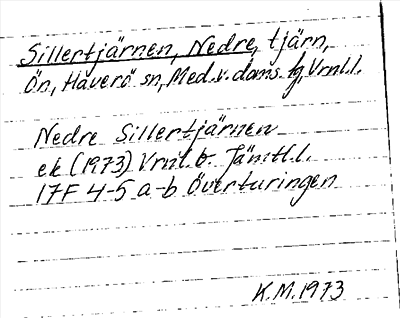 Sillertjärnen, Nedre, tjärn,
Ön, Haverö sn, Med.v.doms.tg, Vrnl.l.
Nedre Sillertjärnen
ek (1973) Vrnl. o. Jämtl.l.
17F 4-5 a-b Överturingen
K.M.1973